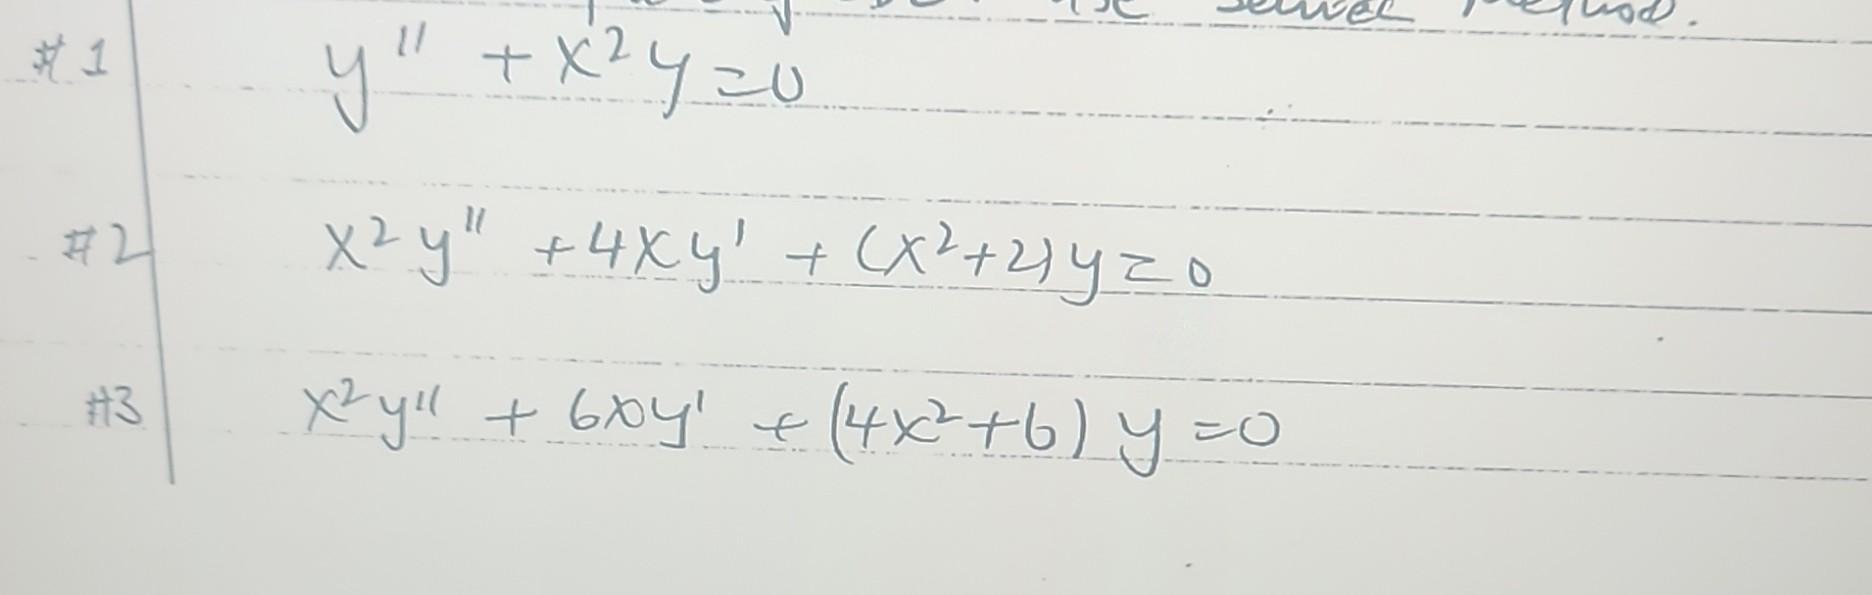 Method.
#1 y'' + x²y=0
#2 x²y'' +4xy' + (x²+2)y=0
#3 x²y'' + 6xy' + (4x²+6) y =0